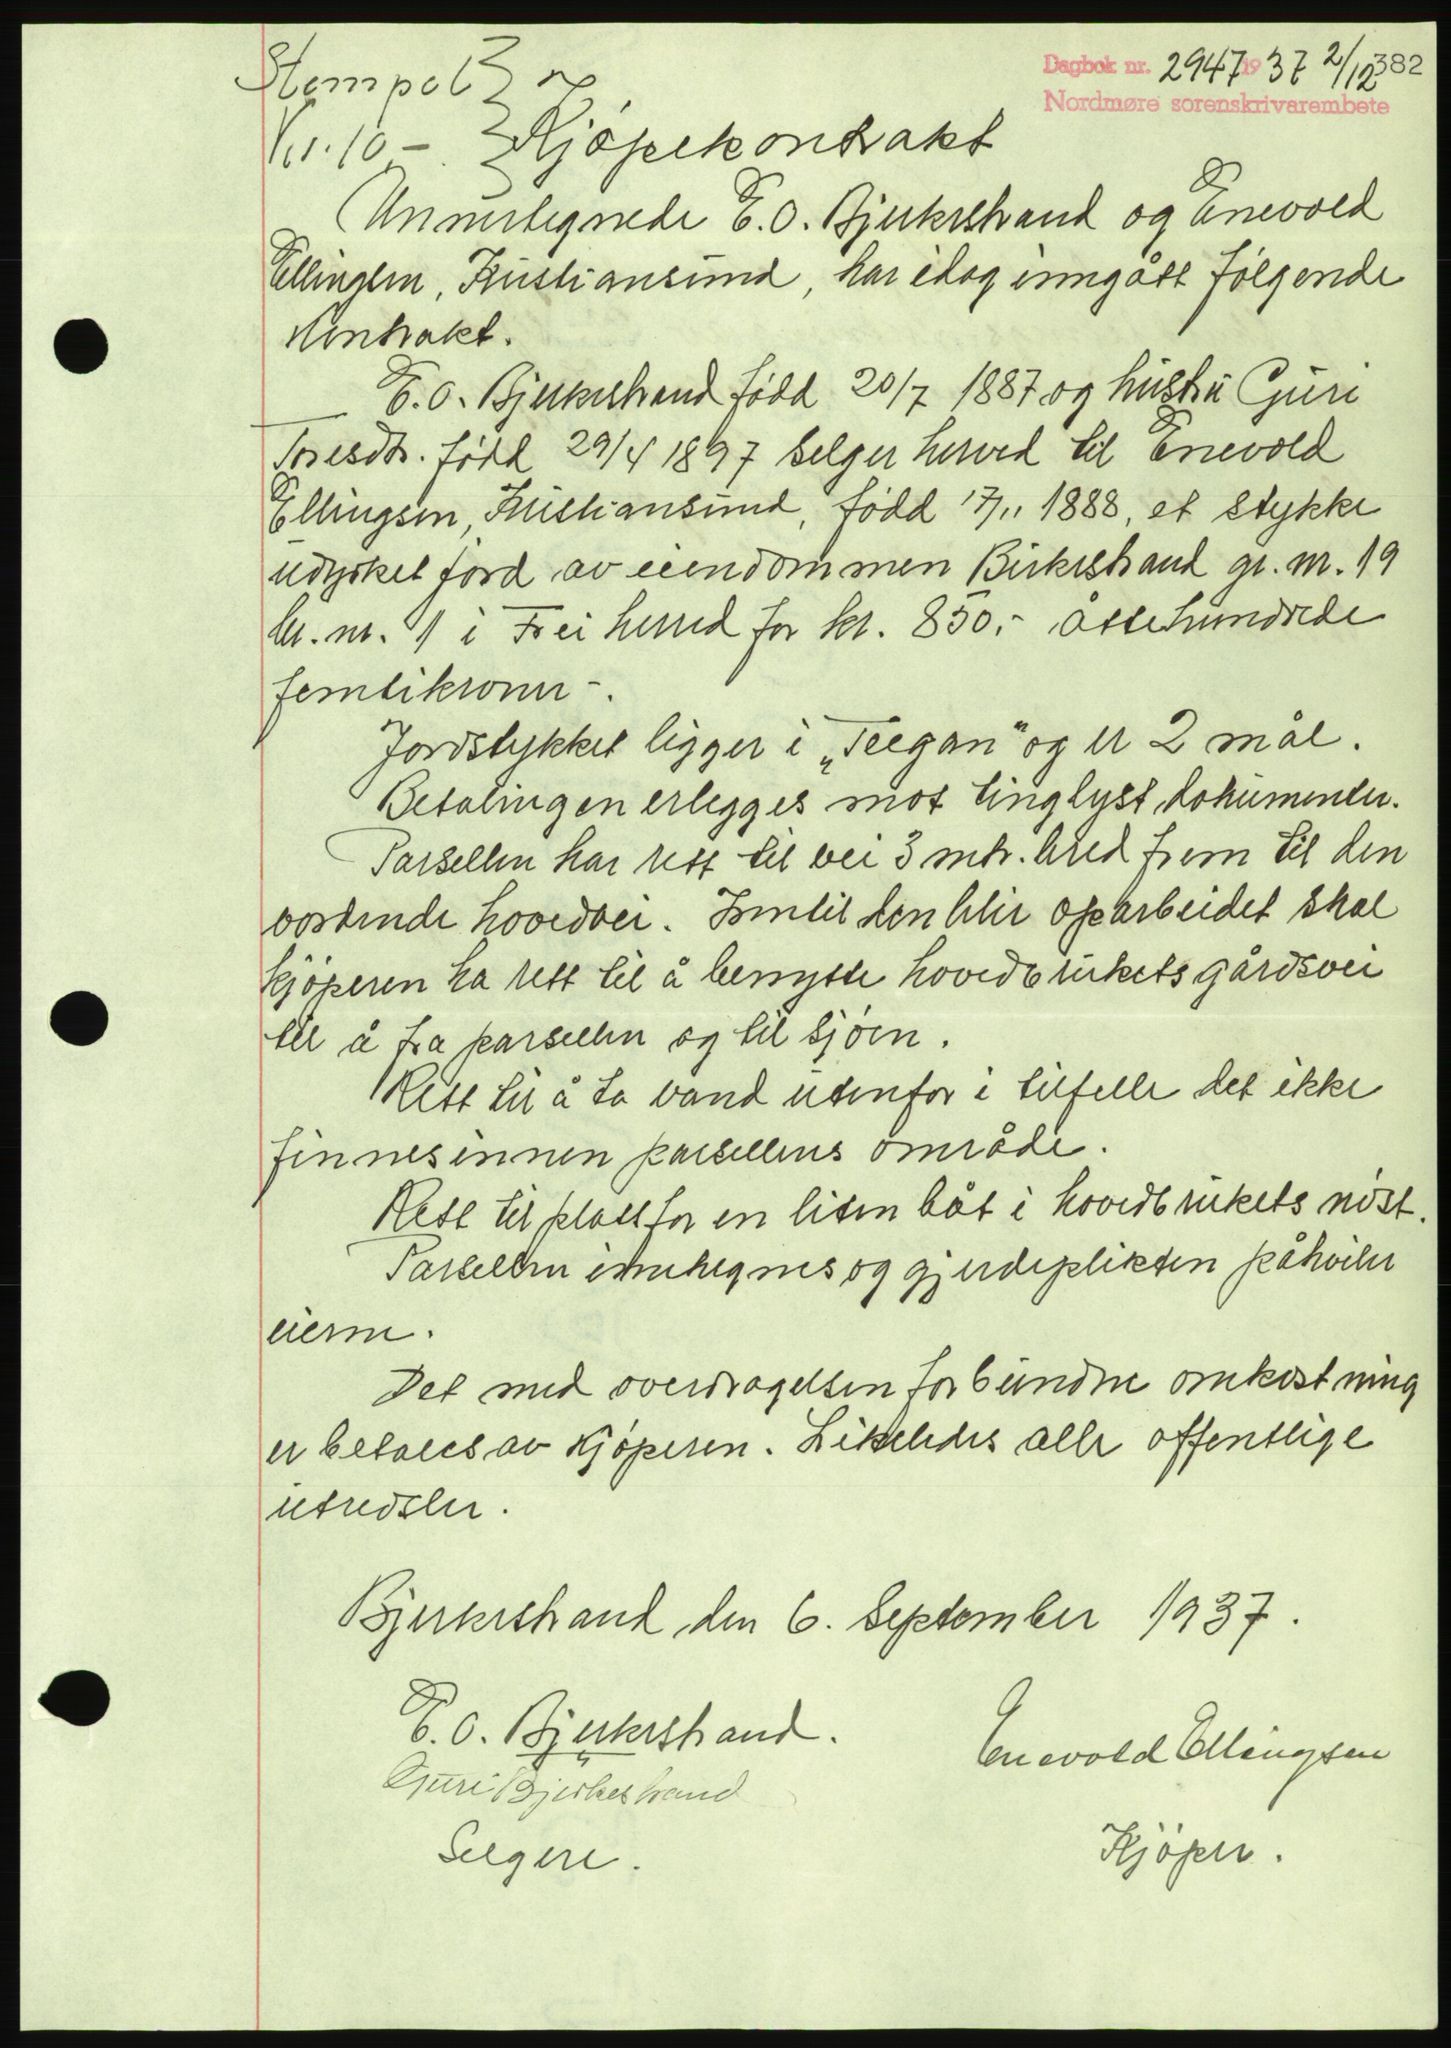 Dagbok nr. 2947 1937 2/12 382
Nordmøre sorenskrivarembete
Stempel
Kr. 10,-
Kjøpekontrakt
Unnertegnede E. O. Bjerkestrand og Enevold
Ellingsen, Kristiansund, har idag inngått følgende
kontrakt.
E. O. Bjerkestrand født 20/7 1887 og hustru Guri
Toresdtr. född 29/4 1897 selger herved til Enevold
Ellingsen, Kristiansund, född 17/11 1888, et stykke
udyrket jord av eiendommen Birkestrand gr. nr. 19
br. nr. 1 i Frei herred for kr. 850,- åttehundrede
femtikroner -.
Jordstykket ligger i „Teegan" og er 2 mål.
Betalingen erlegges mot tinglyst dokumenter.
Parsellen har rett til vei 3 mtr. bred frem til den
vordende hovedvei. Inntil den blir oparbeidet skal
kjøperen ha rett til å benytte hovedbrukets gårdsvei
til å fra parsellen og til sjøen.
Rett til å ta vand utenfor i tilfelle det ikke
finnes innen parsellens område.
Rett til plass for en liten båt i hovedbrukets nøst.
Parsellen innehegnes og gjerdeplikten påhviler
eieren.
Det med overdragelsen forbundne omkostning
er betales av kjøperen. Likeledes alle offentlige
utredsler.
Bjerkestrand den 6. September 1937.
E. O. Bjerkestrand. Enevold Ellingsen
Guri Bjerkestrand
Selgere. Kjøper.